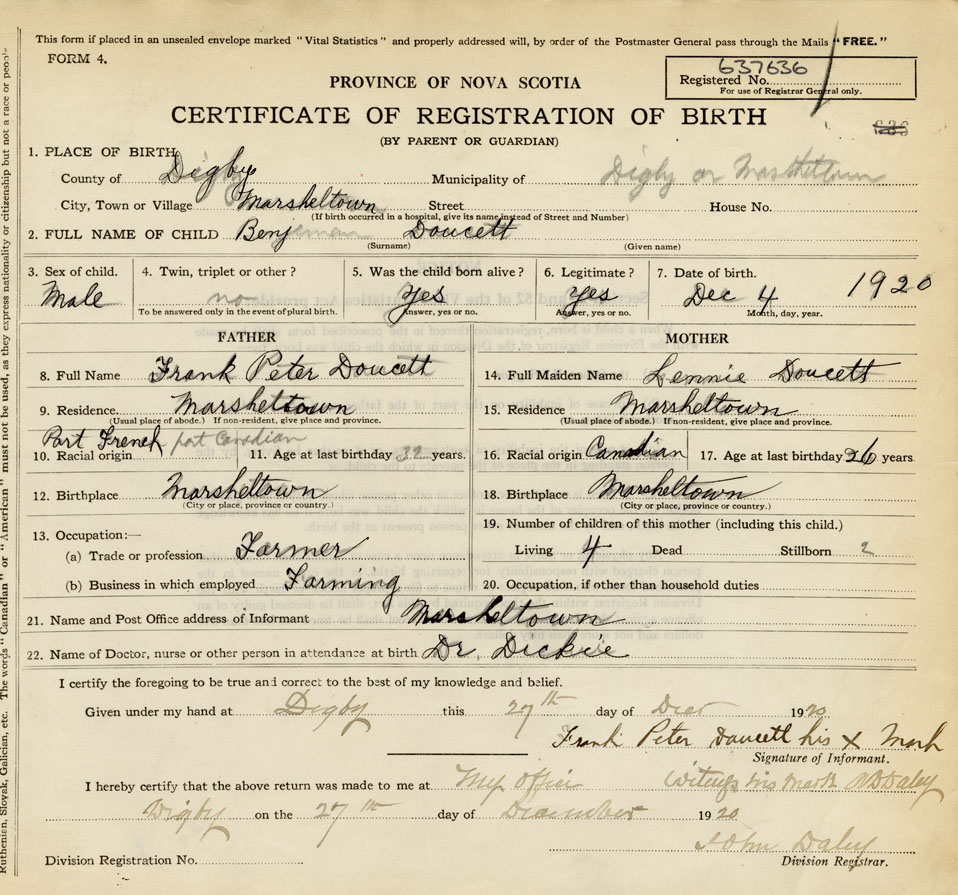 This form if placed in an unsealed envelope marked "Vital Statistics" and properly addressed will, by order of the Postmaster General pass through the Mails "FREE."
FORM 4.
637636
Registered No.
For use of Registrar General only.
PROVINCE OF NOVA SCOTIA
CERTIFICATE OF REGISTRATION OF BIRTH
636
(BY PARENT OR GUARDIAN)
1. PLACE OF BIRTH
County of Digby Municipality of Digby or Marsheltown
City, Town or Village Marsheltown Street House No.
(If birth occurred in a hospital, give its name instead of Street and Number)
2. FULL NAME OF CHILD Benjeman Doucett
(Surname) (Given name)
3. Sex of child. 4. Twin, triplet or other? 5. Was the child born alive? 6. Legitimate? 7. Date of birth.
Male no Yes Yes Dec 4 1920
To be answered only in the event of plural birth. Answer, yes or no. Answer, yes or no. Month, day, year.
FATHER MOTHER
8. Full Name Frank Peter Doucett 14. Full Maiden Name Lennie Doucett
9. Residence. Marsheltown 15. Residence Marsheltown
(Usual place of abode.) If non-resident, give place and province. (Usual place of abode.) If non-resident, give place and province.
Part French part Canadian
10. Racial origin 11. Age at last birthday 32 years. 16. Racial origin Canadian 17. Age at last birthday 26 years
12. Birthplace Marsheltown 18. Birthplace Marsheltown
(City or place, province or country.) (City or place, province or country.)
13. Occupation:— 19. Number of children of this mother (including this child.)
(a) Trade or profession Farmer Living 4 Dead Stillborn 2
(b) Business in which employed Farming 20. Occupation, if other than household duties
21. Name and Post Office address of Informant Marsheltown
22. Name of Doctor, nurse or other person in attendance at birth Dr. Dickie
I certify the foregoing to be true and correct to the best of my knowledge and belief.
Given under my hand at Digby this 27th day of Dec 1920
Frank Peter Doucett his X Mark
Signature of Informant.
I hereby certify that the above return was made to me at My Office Witness his Mark Daley
Digby on the 27th day of December 1920
John Daley
Division Registration No. Division Registrar.
Ruthenian, Slovak, Galician, etc. The words "Canadian" or "American" must not be used, as they express nationality or citizenship but not a race or people